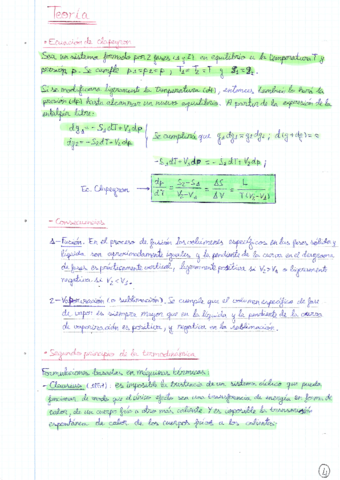 Teoría
- Ecuación de Clapeyron
Sea un sistema formado por 2 fases (1 y 2) en equilibrio a la temperatura T y
presión p. Se cumple p1 = p2 = p ; T1 = T2 = T y g1 = g2.
Si se modificara ligeramente la temperatura (dT), entonces también lo hará la
presión (dp) hasta alcanzar un nuevo equilibrio. A partir de la expresión de la
entalpía libre:
dg1 = -S1dT + V1dp
dg2 = -S2dT + V2dp
Se cumplirá que g1 + dg1 = g2 + dg2 ;
-S1dT + V1dp = -S2dT + V2dp ;
Ec. Clapeyron
dp/dT = S2-S1/V2-V1 = ΔS/ΔV = L/T(V2-V1)
- Consecuencias
1- Fusión. En el proceso de fusión los volúmenes específicos en las fases sólida y
líquida son aproximadamente iguales y la pendiente de la curva en el diagrama
de fases es prácticamente vertical, ligeramente positiva si V2 > V1 o ligeramente
negativa si V2 < V1.
2- Vaporización (o sublimación). Se cumple que el volumen específico de fase
de vapor es siempre mayor que en la líquida y la pendiente de la curva
de vaporización es positiva, y negativa en la sublimación.
- Segundo principio de la termodinámica
Formulaciones basadas en máquinas térmicas:
- Clausius: es imposible la existencia de un sistema cíclico que pueda
funcionar de modo que el único efecto sea una transferencia de energía en forma de
calor, de un cuerpo frío a otro más caliente. Y es imposible la transmisión
espontánea de calor de los cuerpos fríos a los calientes.